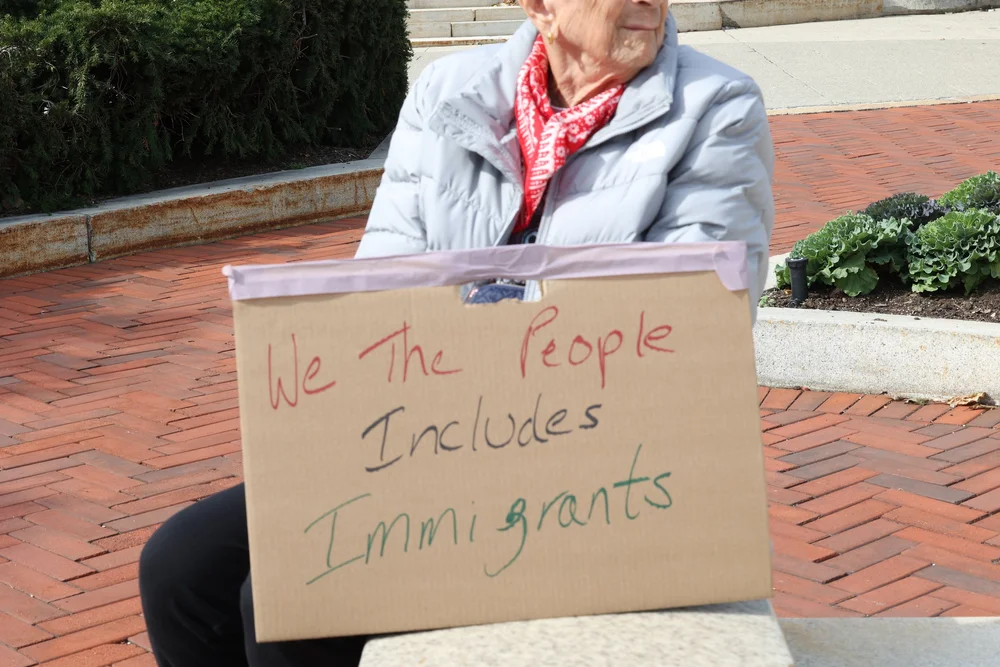 We The People
Includes
Immigrants